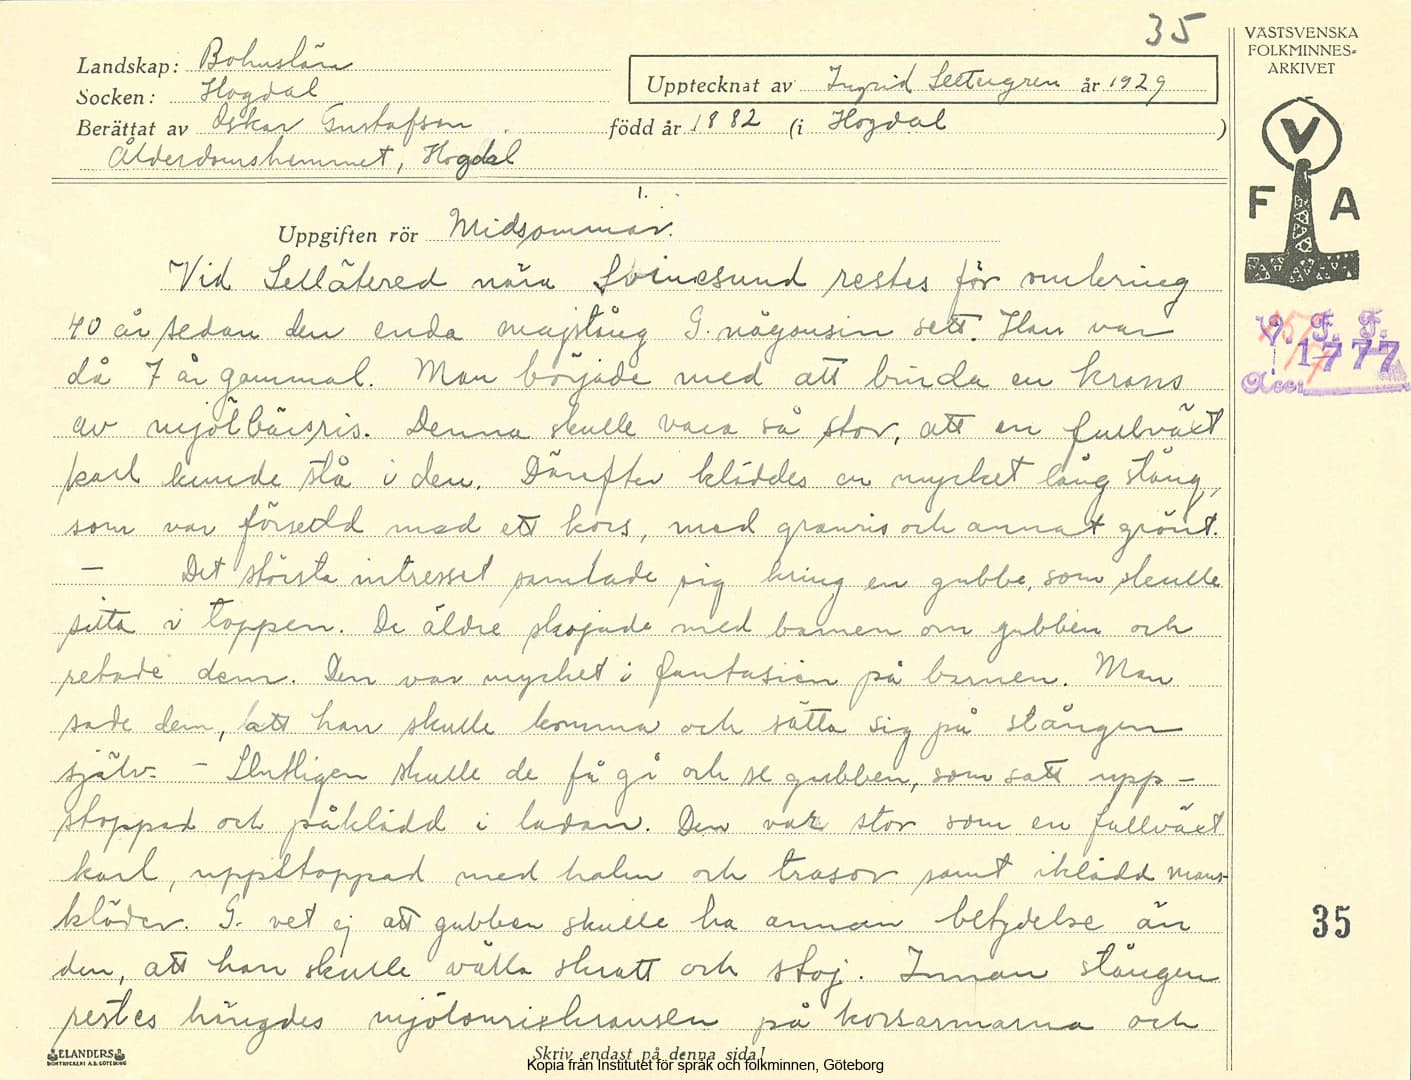 35
VÄSTSVENSKA
FOLKMINNES-
ARKIVET
Landskap: Bohuslän
Socken: Hogdal
Upptecknat av Ingrid år 1929
Berättat av Oskar Gustafson född år 1882 (i Hogdal)
Ålderdomshemmet, Hogdal
V
F A
1.
Uppgiften rör Midsommar.
Vid nära Svinesund restes för omkring
40 år sedan den enda majstång G. någonsin sett. Han var
då 7 år gammal. Man började med att binda en krans
av mjölbärsris. Denna skulle vara så stor, att en fullväxt
karl kunde stå i den. Därefter kläddes en mycket lång stång,
som var försedd med ett kors, med granris och annat grönt.
— Det största intresset samlade sig kring en gubbe, som skulle
sitta i toppen. De äldre skojade med barnen om gubben och
retade dem. Den var mycket i fantasien på barnen. Man
sade dem, att han skulle komma och sätta sig på stången
själv. – Slutligen skulle de få gå och se gubben, som satt upp-
stoppad och påklädd i ladan. Den var stor som en fullväxt
karl, uppstoppad med halm och trasor samt iklädd mans-
kläder. G. vet ej att gubben skulle ha annan betydelse än
den, att han skulle välla skratt och stoj. Innan stången
restes hängdes mjölonriskransen på korsarmarna och
V. F. F.
1777
Acc.
35
ELANDERS
BOKTRYCKERI A.B. GÖTEBORG
Skriv endast på denna sida!
Kopia från Institutet för språk och folkminnen, Göteborg